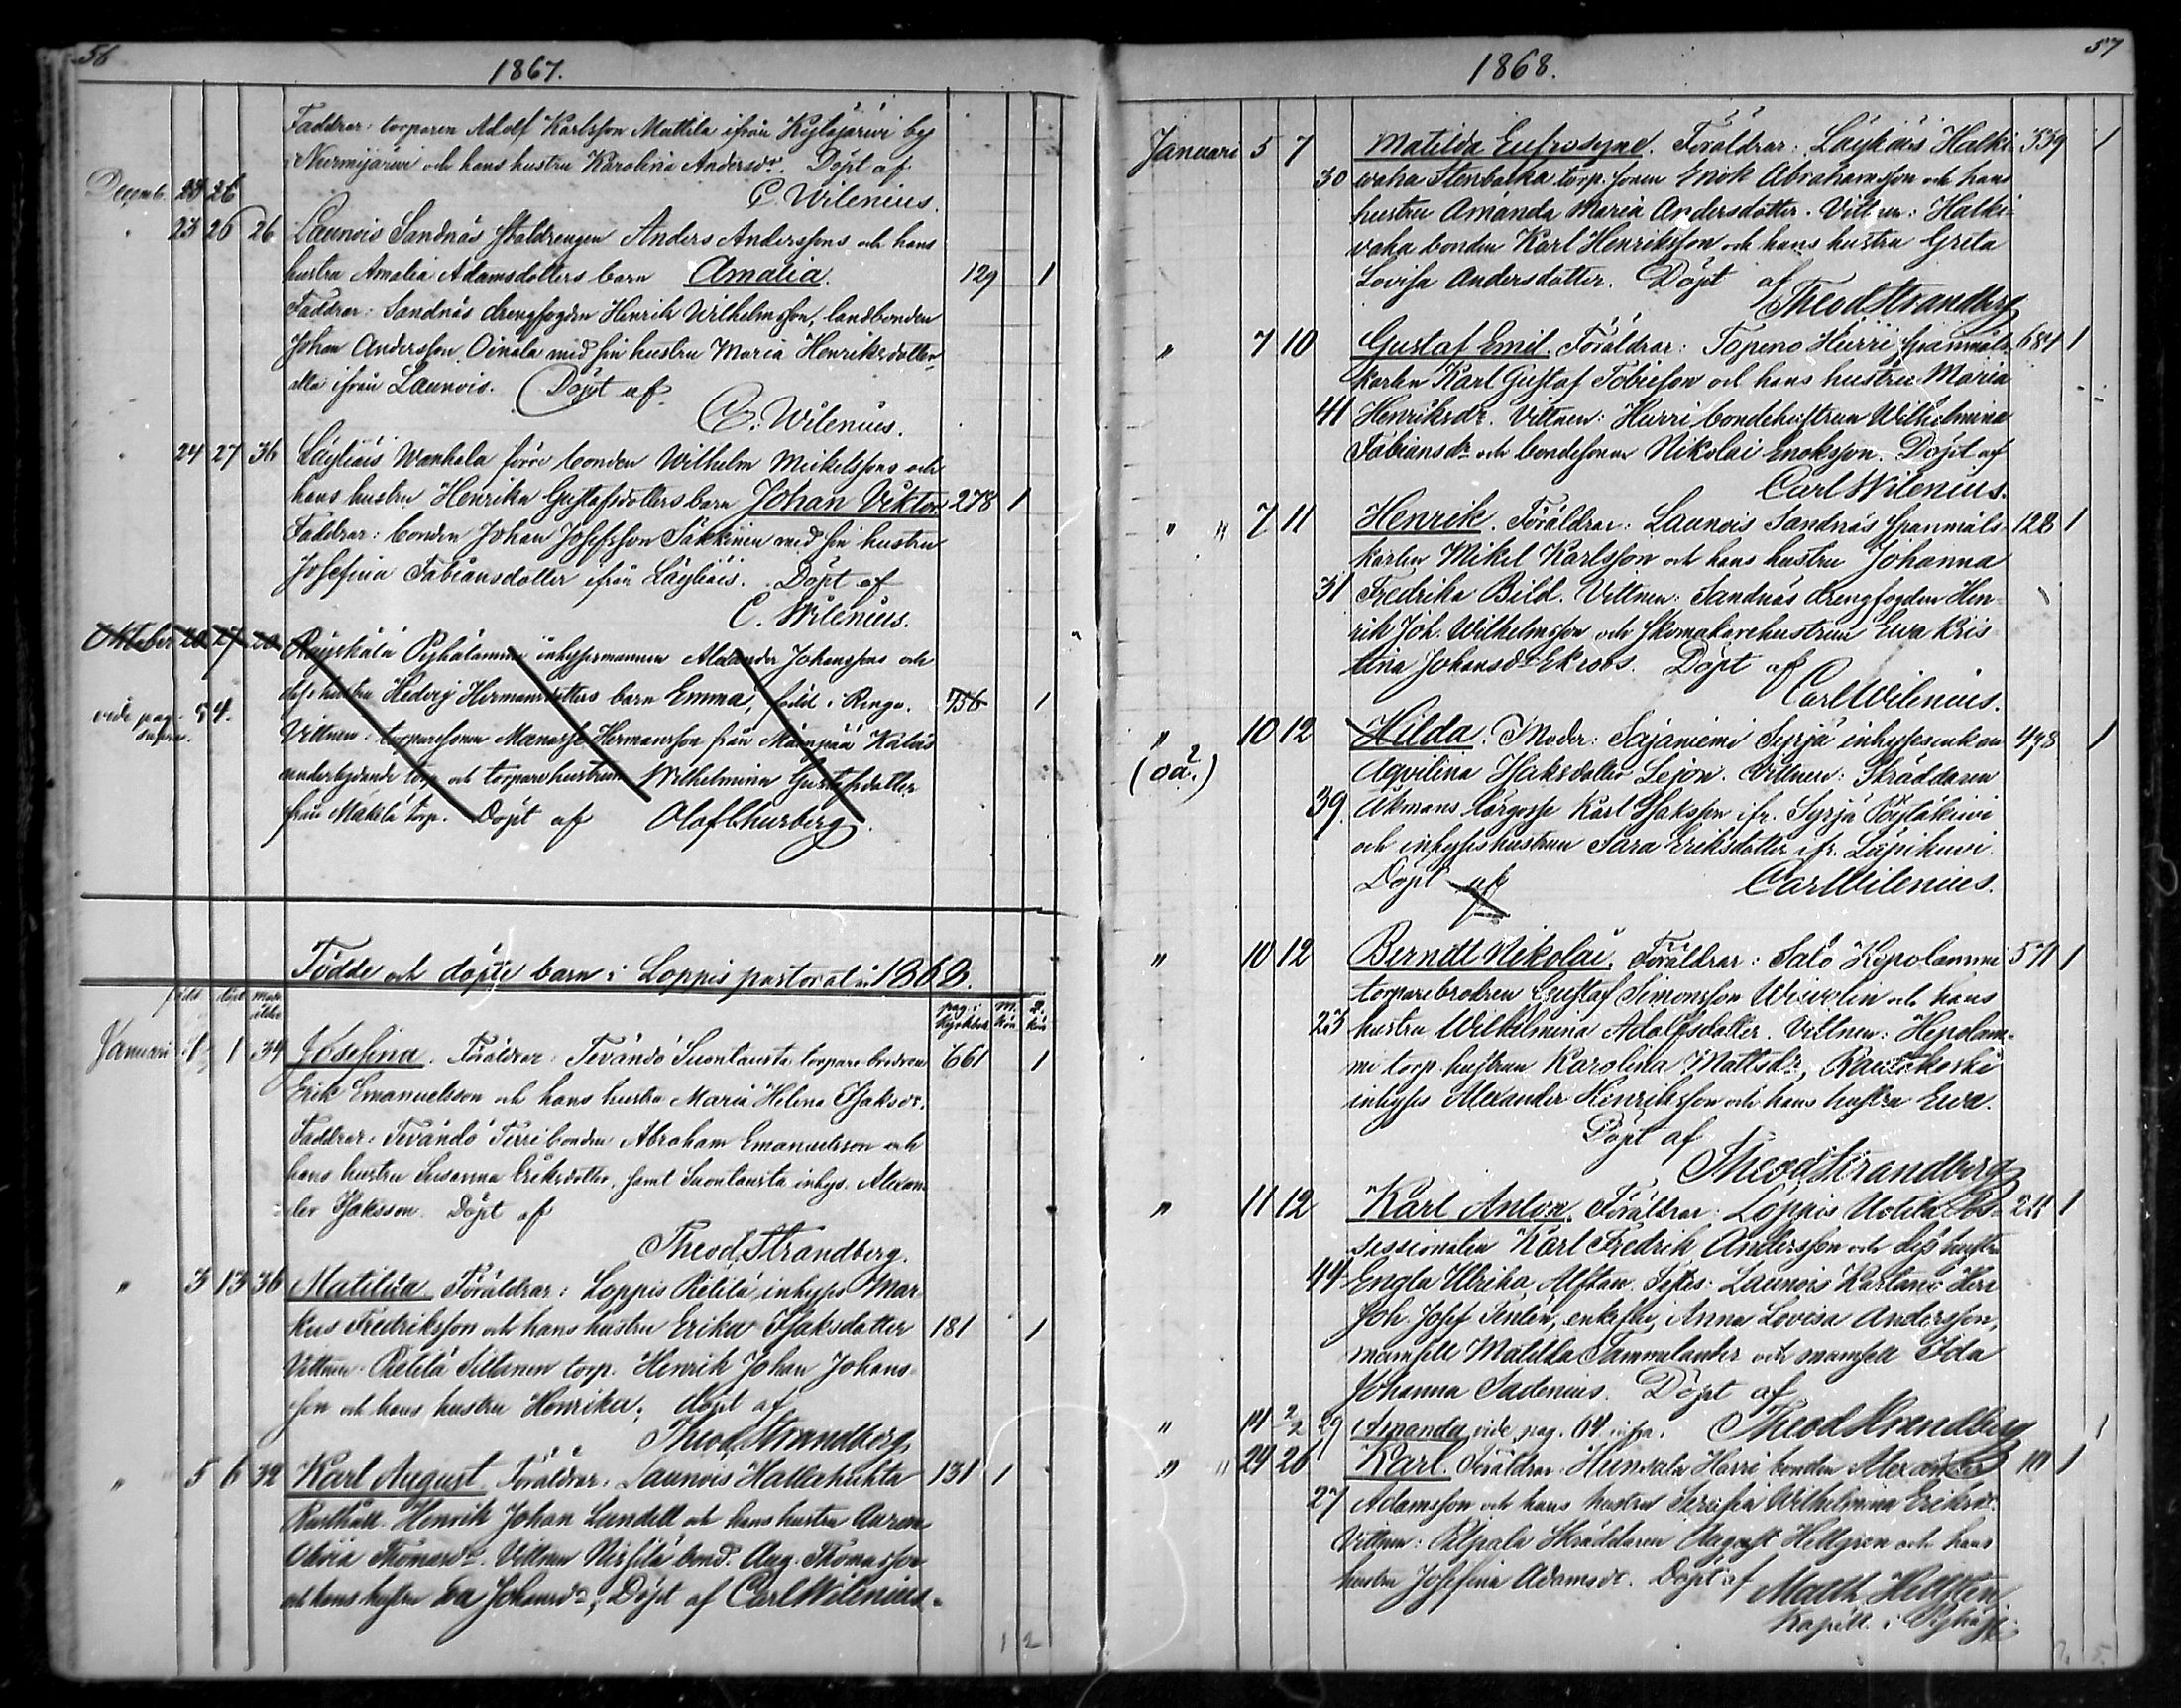 56
1867.
Faddrar: torparen Adolf Karlsson Mattila ifrån Kytäjärvi by
i Nurmijärvi och hans hustru Karolina Andersdr. Döpt af
Decemb. 23 26
C. Wilenius.
" 23 26 26 Launois Sandnäs staldrengen Anders Anderssons och hans
hustru Amalia Adamsdotters barn Amalia. 129 1
Faddrar: Sandnäs drengfogden Henrik Wilhelmsson, landbonden
Johan Andersson Oinala med sin hustru Maria Henriksdotter,
alla ifrån Launois. Döpt af
C. Wilenius.
" 24 27 36 Läyliäis Wanhala förre bonden Wilhelm Mickelssons och
hans hustru Henrika Gustafsdotters barn Johan Viktor 278 1
Faddrar: bonden Johan Josefsson Säkkinen med sin hustru
Josefina Fabiansdotter ifrån Läyliäis. Döpt af
C. Wilenius.
Oktober 20 27 20 Räyskälä Pyhälammi inhysesmannen Alexander Johanssons och
dess hustru Hedvig Hermansdotters barn Emma, född i Renga. 756 1
vide pag. 54.
supra.
Vittnen: torparesonen Manasse Hermansson från Kalvis
underlydande torp och torparehustrun Wilhelmina Gustafsdotter
från Mäkelä torp. Döpt af Olof Churberg.
Födde och döpte barn i Loppis pastorat år 1868.
född döpt mod. ålder pag. i Kyrkbok M. kön Q. kön
Januari 1 1 34 Josefina. Föräldrar: Tevändö Suontausta torpare brodren 661 1
Erik Emanuelsson och hans hustru Maria Helena Isaksdr.
Faddrar: Tevändö Terri bonden Abraham Emanuelsson och
hans hustru Susanna Eriksdotter, samt Suontausta inhys. Alexan-
der Isaksson. Döpt af
Theod. Strandberg.
" 3 13 36 Matilda. Föräldrar: Loppis Pietilä inhyses Mar-
kus Fredriksson och hans hustru Erika Isaksdotter 181 1
Vittnen: Pietilä Siltanen torp. Henrik Johan Johans-
son och hans hustru Henrika. döpt af
Theod. Strandberg
" 5 6 32 Karl August. Föräldrar: Launois Hallahuhta 131 1
Rusthåll. Henrik Johan Lundell och hans hustru Aurora
Olivia Thomasdr. Vittnen bond. Aug. Thomasson
och hans hustru Eva Johansdr., Döpt af Carl Wilenius.
1 2
57
1868.
Januari 5 7 Matilda Eufrosyne. Föräldrar: Läyliäis Halki- 339 1
30 vaha Stenbacka torp. sonen Enok Abrahamsson och hans
hustru Amanda Maria Andersdotter. Vittnen: Halki-
vaha bonden Karl Henriksson och hans hustru Greta
Lovisa Andersdotter. Döpt af
Theod Strandberg
" 7 10 Gustaf Emil. Föräldrar: Topeno Hurri spanmåls- 681 1
karlen Karl Gustaf Tobiesson och hans hustru Maria
41 Henriksdr. Vittnen: Hurri bondehustrun Wilhelmina
Fabiansdr. och bondesonen Nikolai Enoksson. Döpt af
Carl Wilenius.
" " 7 11 Henrik. Föräldrar: Launois Sandnäs spanmåls- 128 1
karlen Mikel Karlsson och hans hustru Johanna
31 Fredrika Bild. Vittnen: Sandnäs drengfogden Hen-
rik Joh. Wilhelmsson och skomakarehustrun Eva Kris-
tina Johansdr Ekroos. Döpt af
Carl Wilenius.
" 10 12 Hilda. Moder: Sajaniemi Syrjä inhysesenkan 498 1
(oä.)
Aqvilina Isaksdotter Lejon. Vittnen: Skräddaren
39. Åkmans lärgosse Karl Isaksson ifr. Syrjä Pöytäkivi
och inhyseshustrun Sara Eriksdotter ifr. Läpikuvi.
Döpt af Carl Wilenius.
" 10 12 Berndt Nikolai. Föräldrar: Salo Hepolammi 571 1
torparebrodren Gustaf Simonsson Wisvolin och hans
23 hustru Wilhelmina Adolfsdotter. Vittnen: Hepolam-
mi torp. hustrun Karolina Mattsdr, Rautakoski
inhyses Alexander Henriksson och hans hustru Eva.
Döpt af
Theod. Strandberg
" 11 12 Karl Anton. Föräldrar: Loppis Uotila Pos- 211 1
sessionaten Karl Fredrik Andersson och dess hustru
44 Engla Ulrika Alftan. Testes: Launois Kartano Herr
Joh. Josef enkefru Anna Lovisa Andersson,
mamsell Matilda Tammelander och mamsell Ida
Johanna Sadenius. Döpt af
" 14 2/2 29 Amanda vide pag. 64 infra. Theod Strandberg 1
" " 24 26 Karl. Föräldrar: Hunsala Harri bonden Alexander 10 1
27 Adamsson och hans hustru Serafia Wilhelmina Eriksdr.
Vittnen: Pilpala Skräddaren August Hellgren och hans
hustru Josefina Adamsdr. Döpt af
Kapell. i